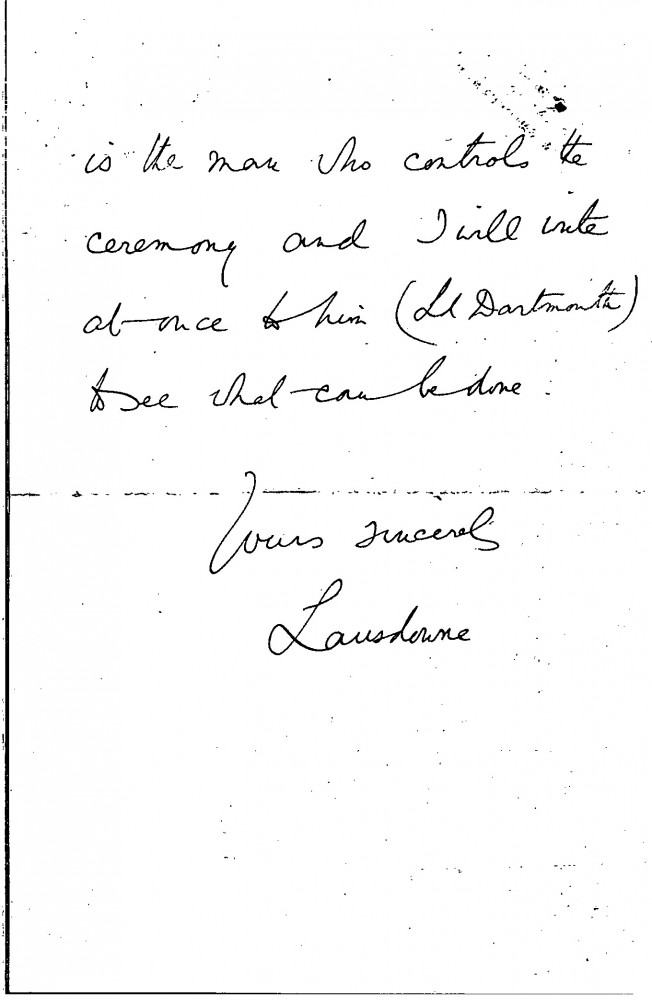 is the man who controls the
ceremony and I will write
at once to him (Ld Dartmouth)
to see what can be done.
Yours sincerely
Lansdowne